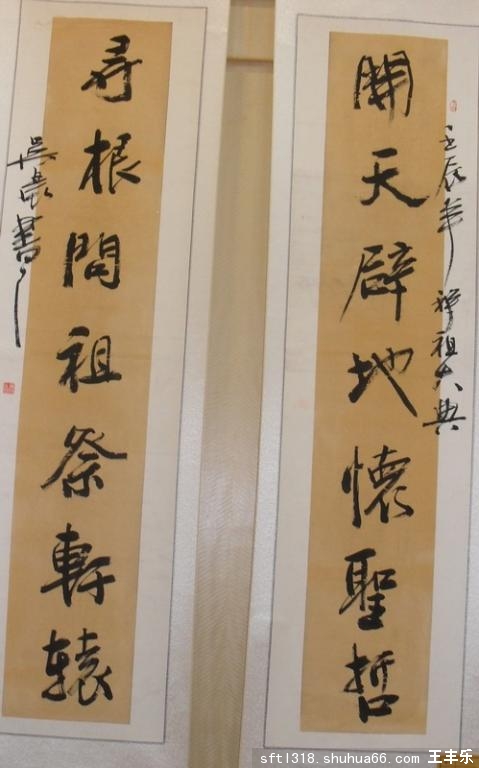 開天辟地懷聖哲
壬辰年 拜祖大典
尋根問祖祭軒辕
吳 書
sftl318.shuhua66.com 王丰乐